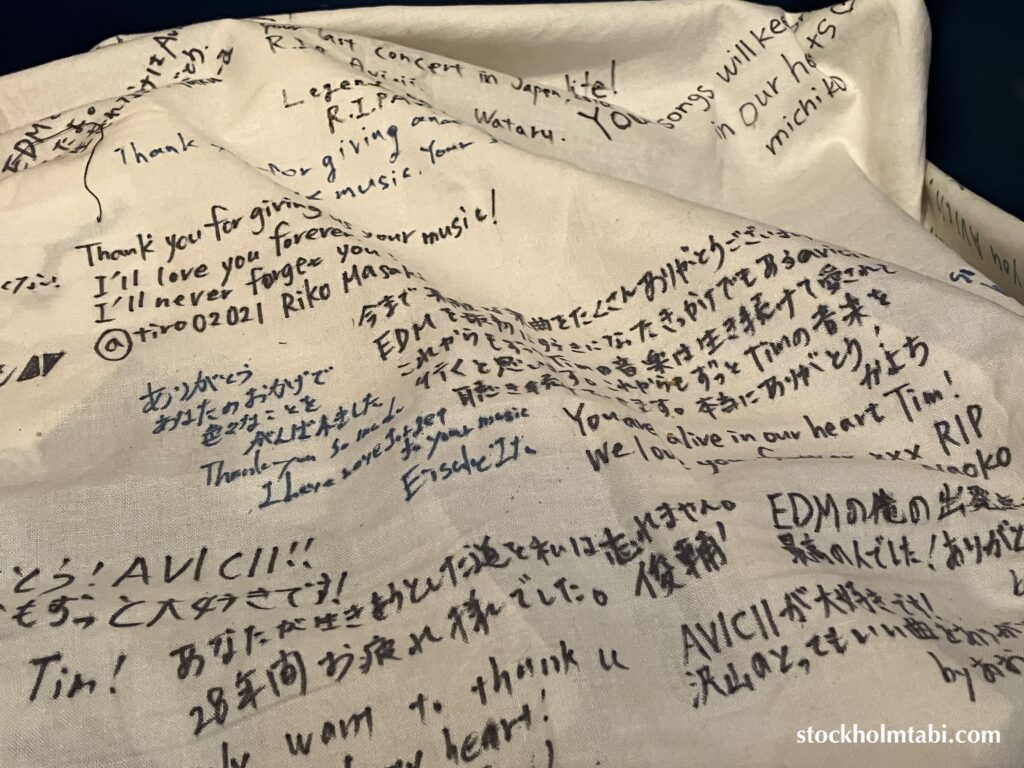 EDM
your last concert in Japan,
R.I.P
Avicii
Legen
R.I.P
Wataru.
life!
You
songs will kee
in our hots
michiko
Thank
for giving and
music. Your
Thank you for giving
music!
I'll love you forever your
I'll never forget you
@tiro02021 Riko Masa
今まで
曲をたくさんありがとうござい
EDMを
きになったきっかけでもあるavicii
これからも
の音楽は生き続けて愛されて
行くと思い
これからもずっとTimの音楽を
聴き続けます。本当にありがとう!
かよち
ありがとう
あなたのおかげで
色々なことを
がんば来ました
Thank you so much
I have never forget
your music
You are alive in our heart Tim!
We love you forever xxx RIP
naoko
とう!AVICII!!
もずっと大好きです!
Tim!
あなたが生きようとした道を私は忘れません。
28年間お疲れ様でした。俊輔
want to thank u
heart!
EDMの俺の出発点
最高の人でした!ありがと
AVICIIが大好きです!
沢山のとってもいい曲をありが
by
stockholmtabi.com